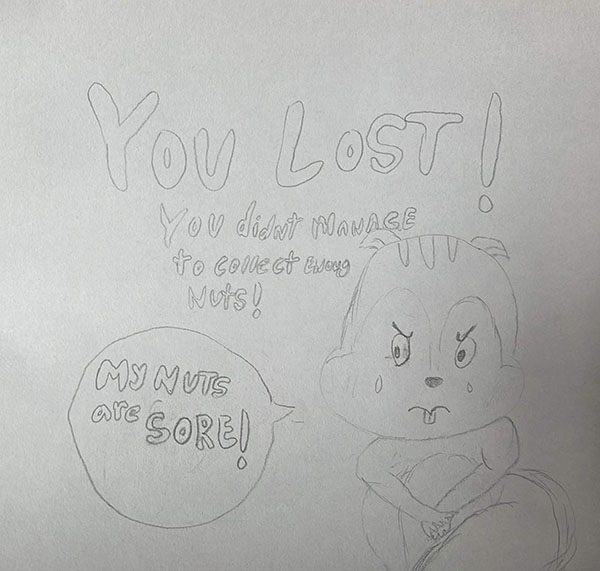 YOU LOST!
YOU didnt MANAGE
to collect Enoug
Nuts!
MY NUTS
are SORE!